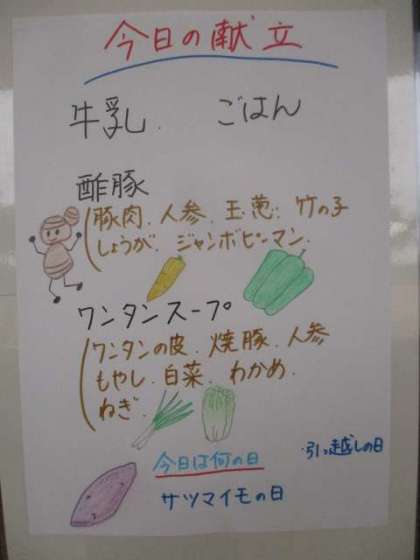 今日の献立
牛乳. ごはん
酢豚
豚肉. 人参. 玉葱. 竹の子
しょうが. ジャンボピーマン.
ワンタンスープ
ワンタンの皮. 焼豚. 人参
もやし. 白菜. わかめ.
ねぎ.
今日は何の日
・引っ越しの日
サツマイモの日